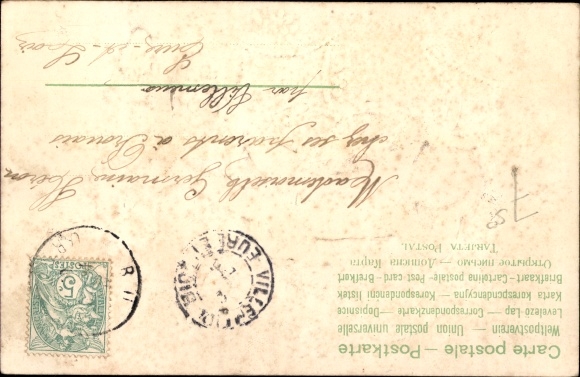 Carte postale – Postkarte
Weltpostverein – Union postale universelle
Levelező-Lap – Correspondenzkarte – Dopisnice
Karta korespondencyjna – Korespondenční lístek
Briefkaart – Cartolina postale – Post-card – Brefkort
Открытое письмо – Дописна Карта
Tarjeta Postal
Mademoiselle Germaine
chez ses parents à
par Villemeux
Eure-et-Loir
POSTES
5c
VILLEM
EURE ET LOIR